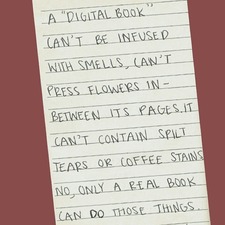 A "DIGITAL BOOK"
CAN'T BE INFUSED
WITH SMELLS, CAN'T
PRESS FLOWERS IN-
BETWEEN ITS PAGES. IT
CAN'T CONTAIN SPILT
TEARS OR COFFEE STAINS
NO, ONLY A REAL BOOK
CAN DO THOSE THINGS.